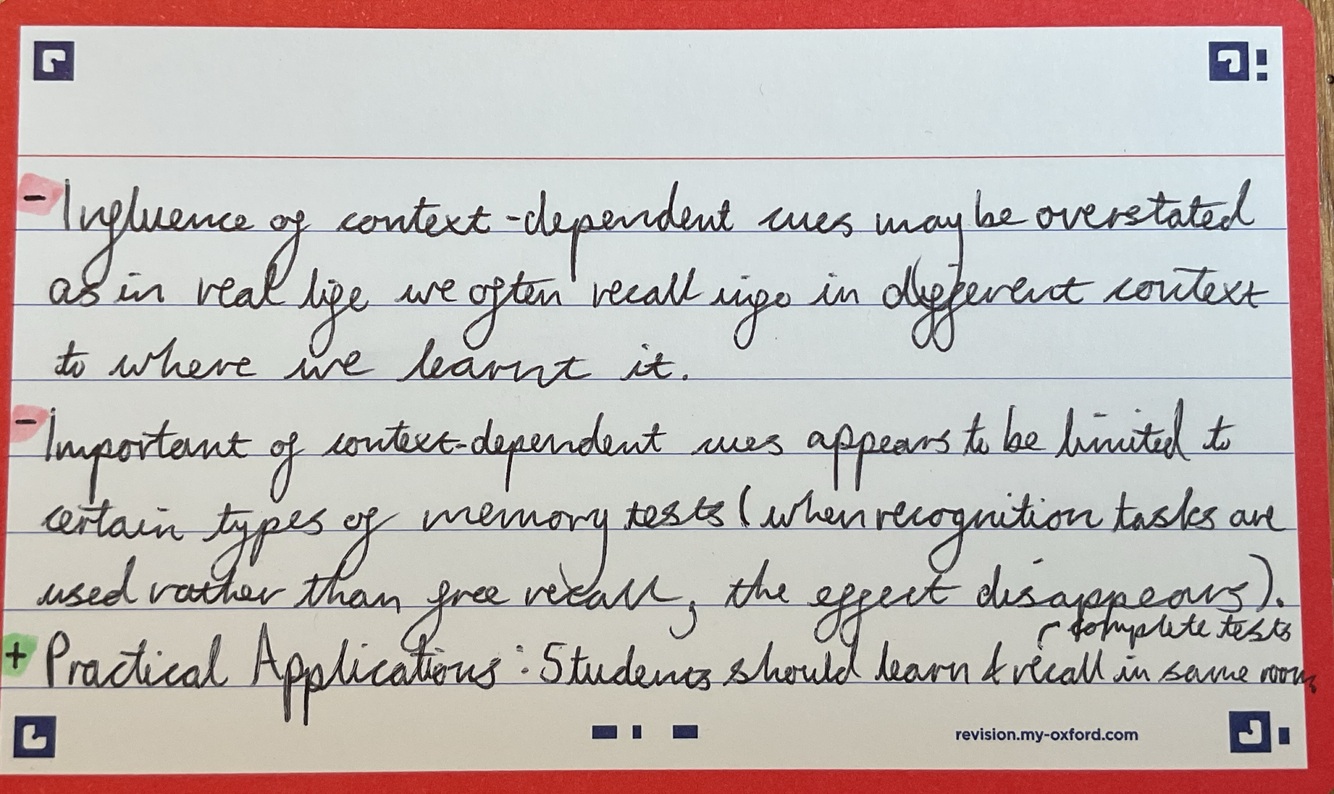 - Influence of context-dependent cues may be overstated
as in real life we often recall info in different context
to where we learnt it.
- Important of context-dependent cues appears to be limited to
certain types of memory tests (when recognition tasks are
used rather than free recall, the effect disappears).
complete tests
+ Practical Applications: Students should learn & recall in same room
revision.my-oxford.com